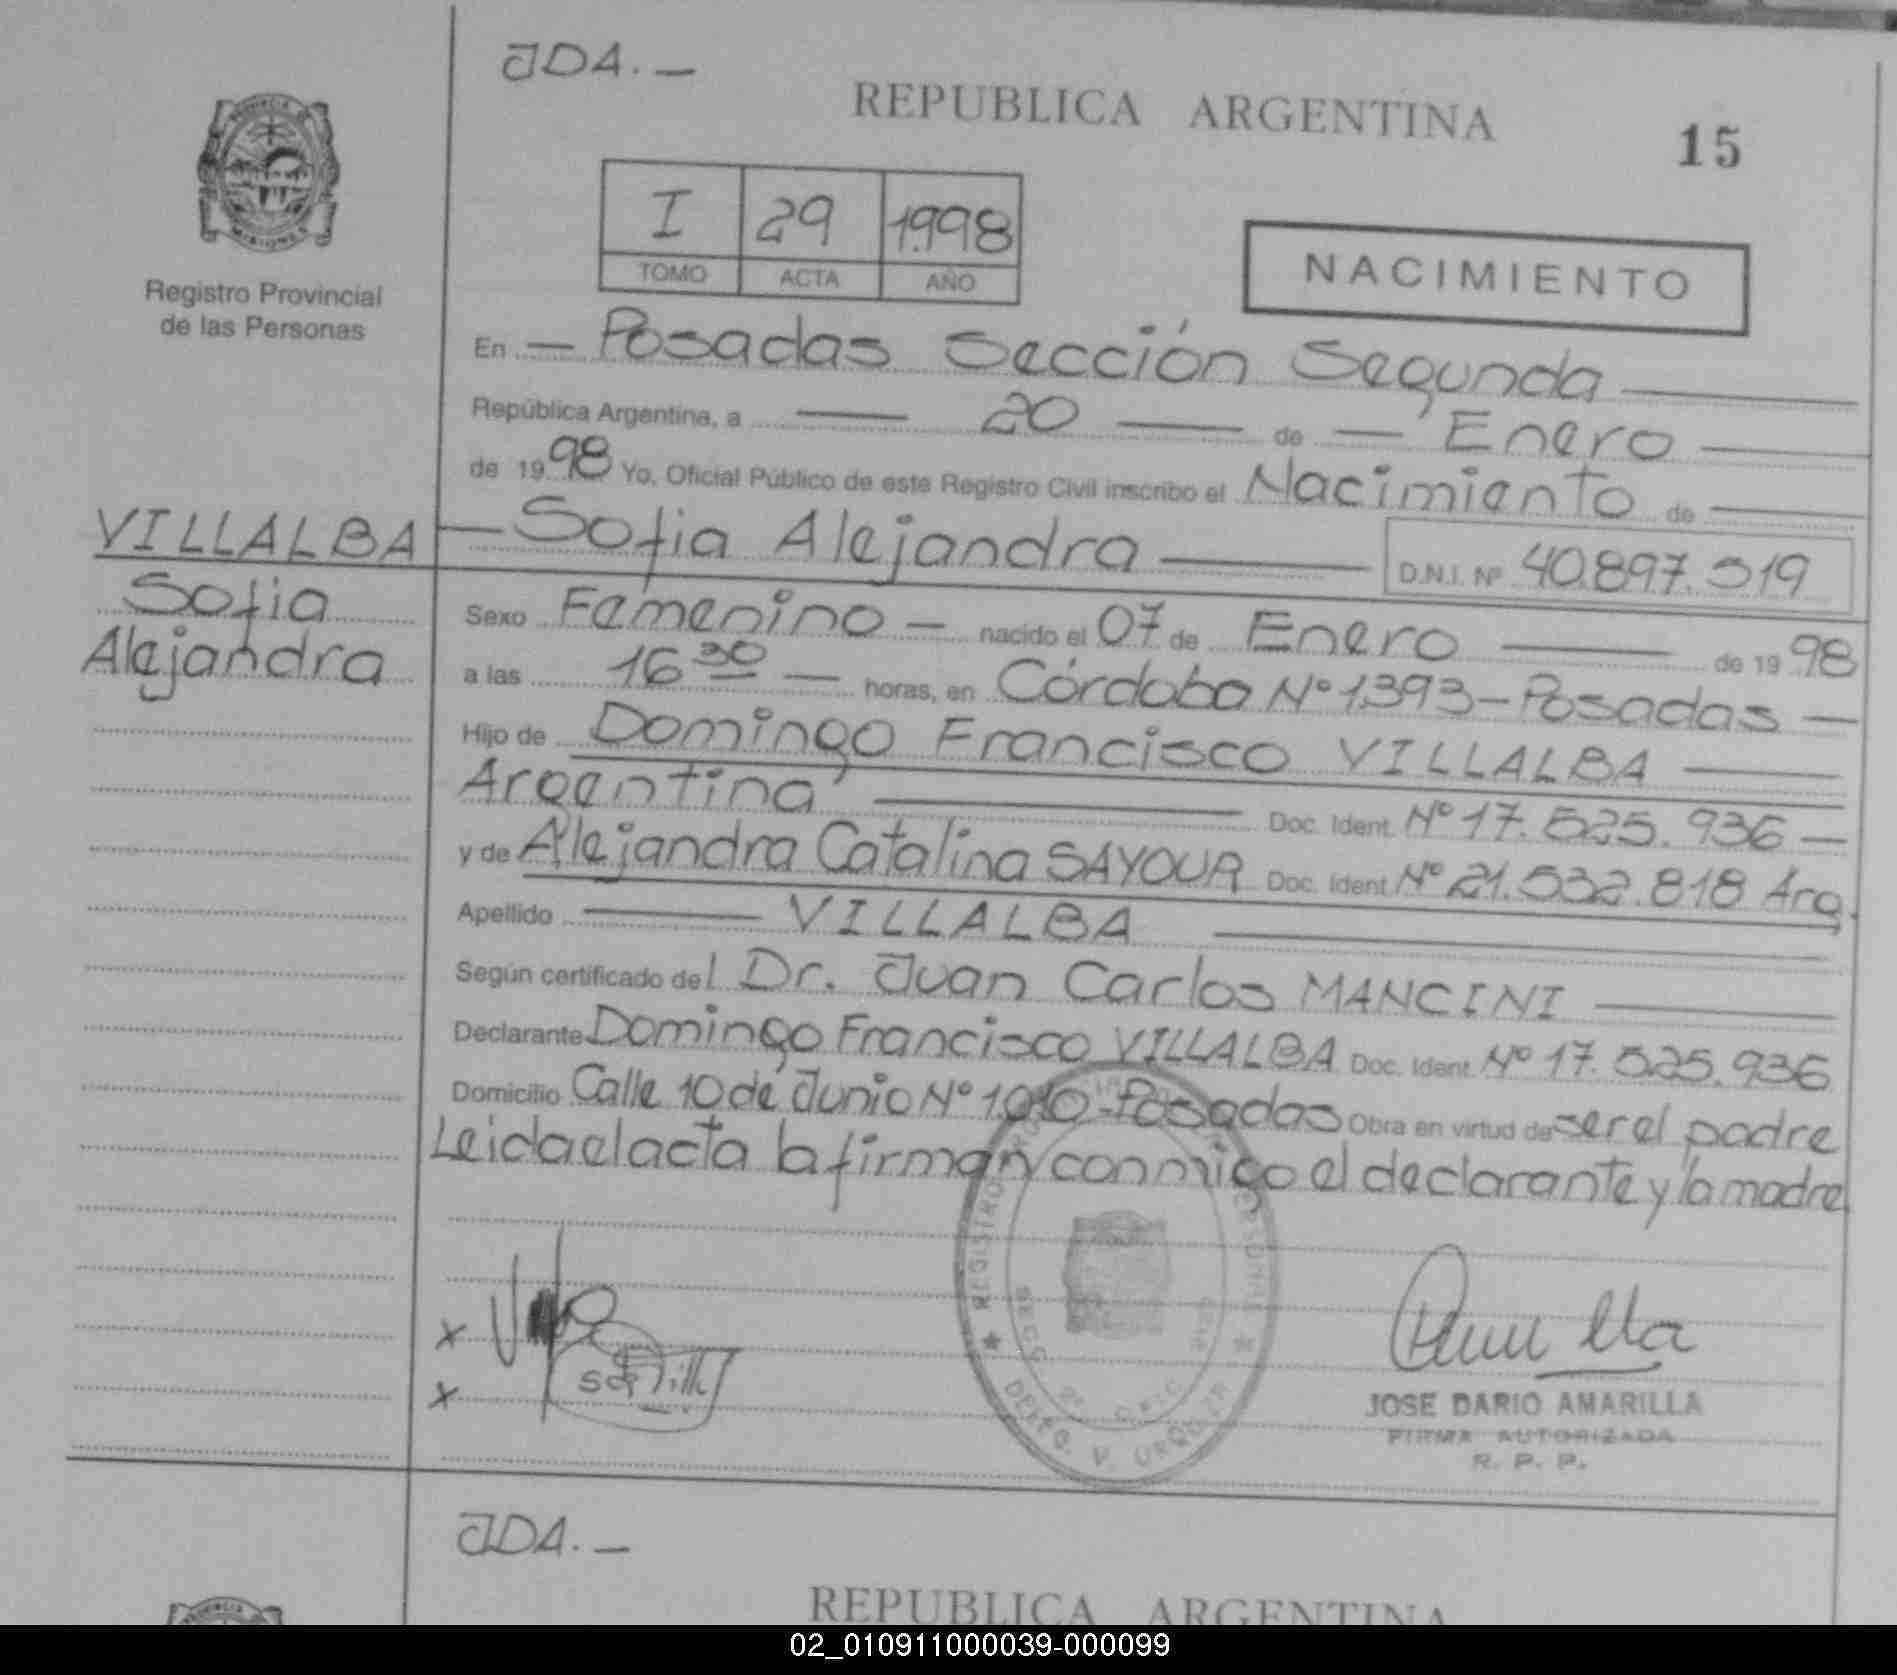 JDA.—
REPUBLICA ARGENTINA
15
PROVINCIA DE
MISIONES
Registro Provincial
de las Personas
I 29 1.998
TOMO ACTA AÑO
NACIMIENTO
En — Posadas Sección Segunda —
República Argentina, a — 20 — de — Enero —
de 1998 Yo, Oficial Público de este Registro Civil inscribo el Nacimiento de —
VILLALBA — Sofia Alejandra — D.N.I. Nº 40.897.519
Sofia
Alejandra
Sexo Femenino — nacido el 07 de Enero — de 1998
a las 16 30 — horas, en Córdoba Nº 1.393 - Posadas —
Hijo de Domingo Francisco VILLALBA —
Argentina — Doc. Ident. Nº 17.525.936 —
y de Alejandra Catalina SAYOUR Doc. Ident. Nº 21.532.818 Arg.
Apellido — VILLALBA —
Según certificado del Dr. Juan Carlos MANCINI —
Declarante Domingo Francisco VILLALBA Doc. Ident. Nº 17.525.936
Domicilio Calle 10 de Junio Nº 1010 - Posadas Obra en virtud de ser el padre
Leida el acta la firman conmigo el declarante y la madre
★ REGISTRO PERSONAS ★
SECC. 2º
DELEG. V. URQUIZA
x
x
JOSE DARIO AMARILLA
FIRMA AUTORIZADA
R. P. P.
JDA.—
PROVINCIA
REPUBLICA ARGENTINA
02_010911000039-000099